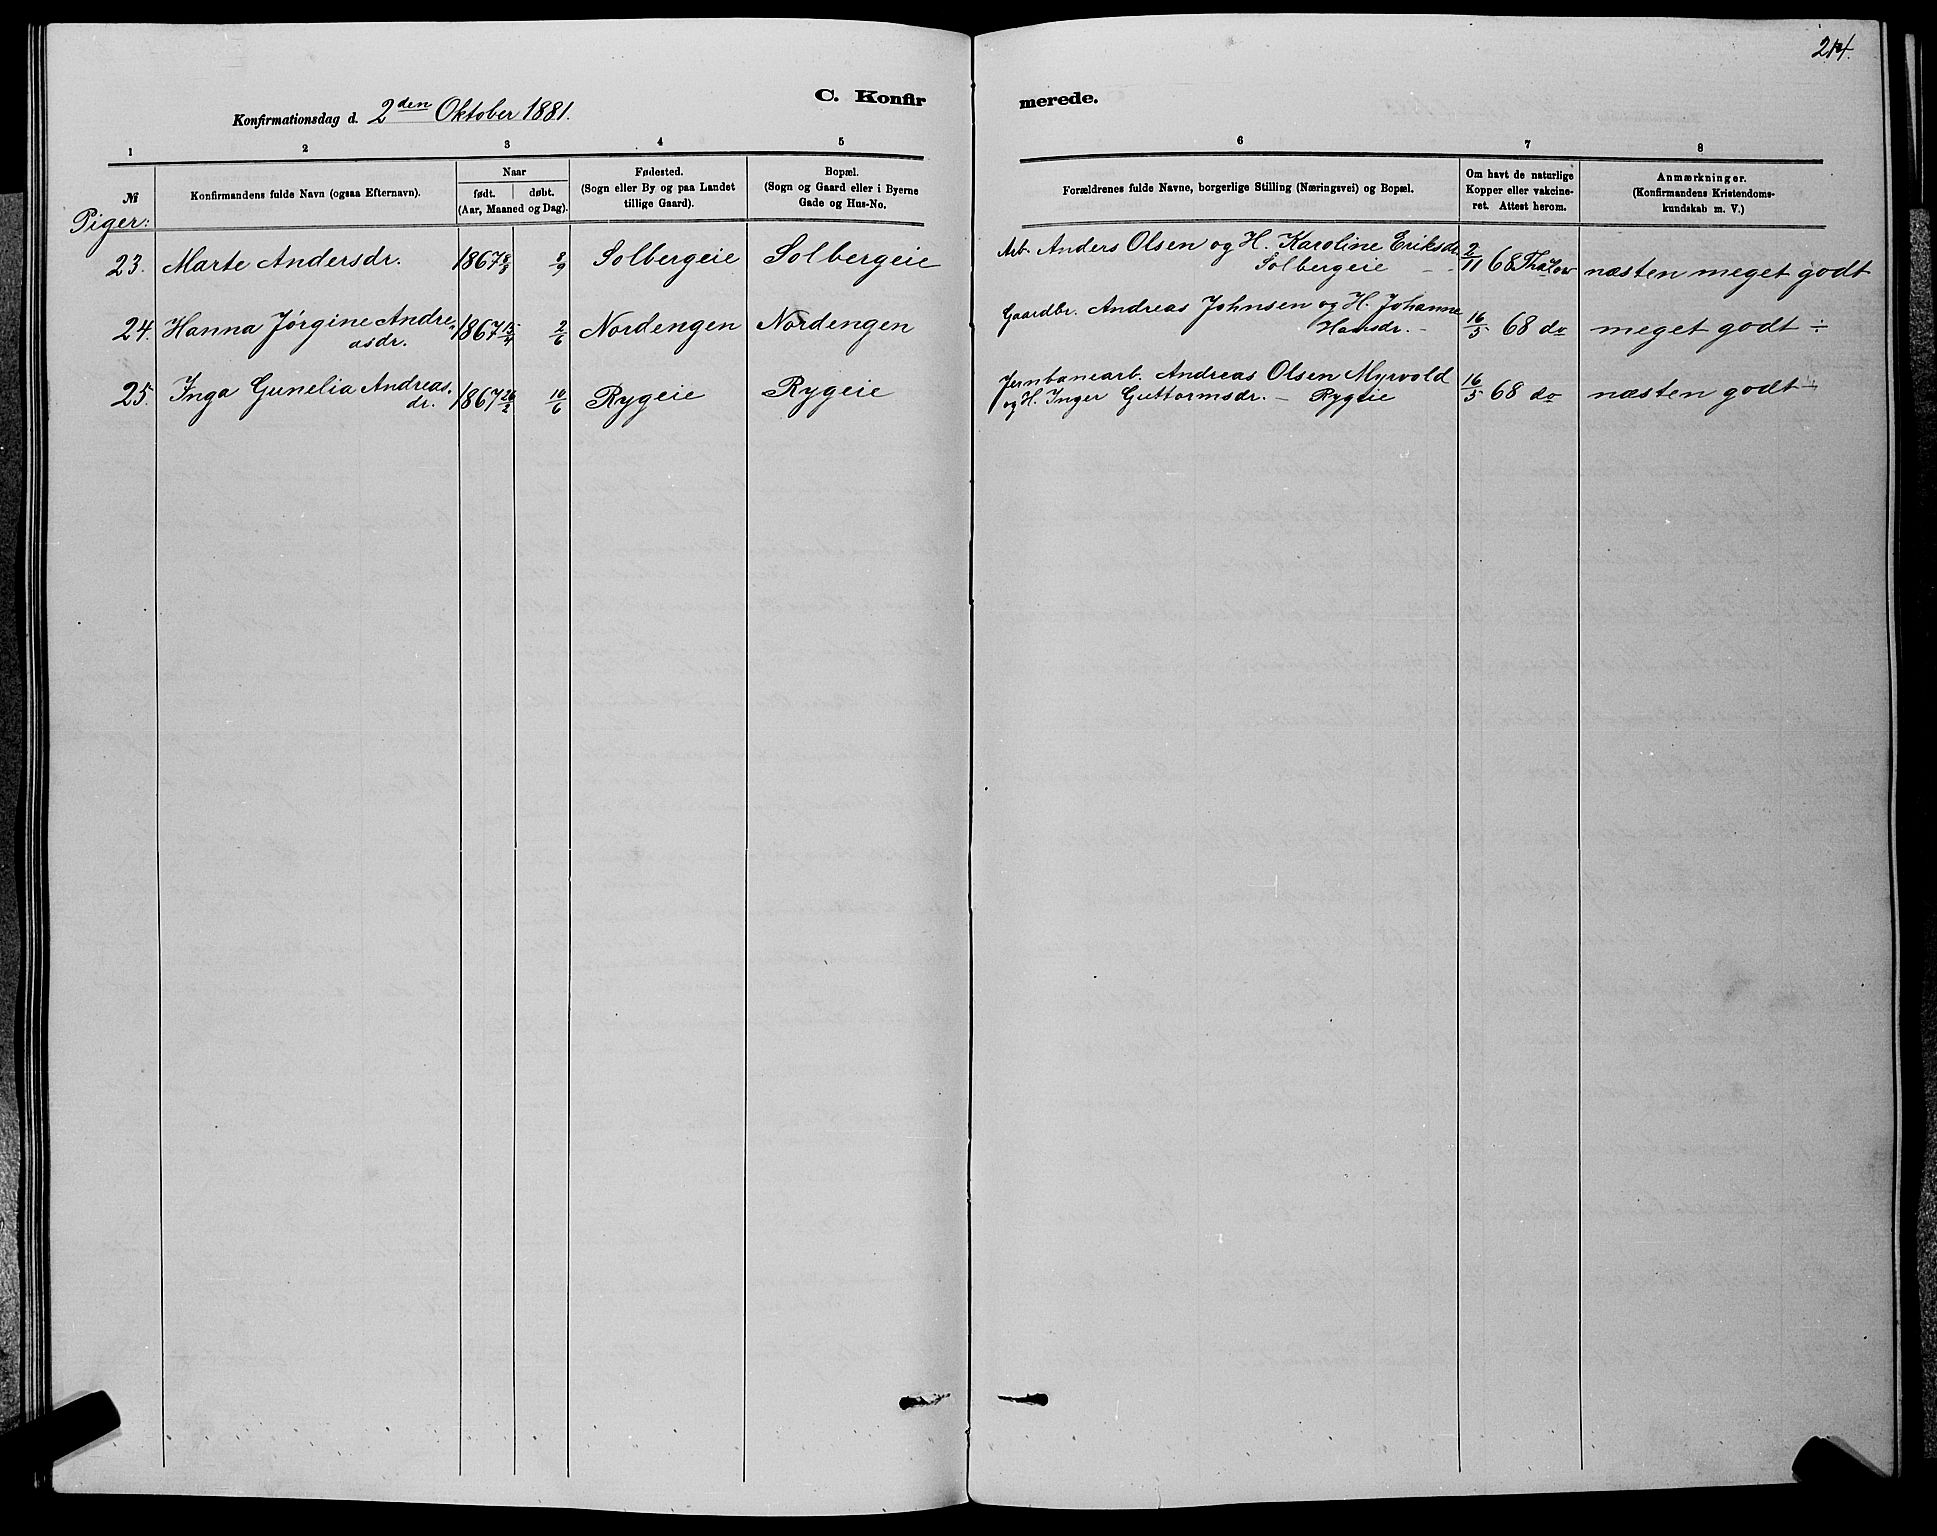 214.
C. Konfir merede.
Konfirmationsdag d. 2den Oktober 1881.
1 2 3 4 5 6 7 8
№
Konfirmandens fulde Navn (ogsaa Efternavn).
Naar
født. døbt.
(Aar, Maaned og Dag).
Fødested.
(Sogn eller By og paa Landet
tillige Gaard).
Bopæl.
(Sogn og Gaard eller i Byerne
Gade og Hus-No.
Forældrenes fulde Navne, borgerlige Stilling (Næringsvei) og Bopæl.
Om havt de naturlige
Kopper eller vakcine-
ret. Attest herom.
Anmærkninger.
(Konfirmandens Kristendoms-
kundskab m. V.)
Piger:
23. Marte Andersdr. 1867 8/9 Solbergeie Solbergeie Arb. Anders Olsen og H. Karoline Eriksdr.
Solbergeie 2/11 68 Thalow næsten meget godt
24. Hanna Jørgine Andre-
asdr. 1867 15/4 2/6 Nordengen Nordengen Gaardbr. Andreas Johnsen og H. Johanne
Hansdr. - 16/5 68 do meget godt ÷
25. Inga Gunelia Andreas-
dr. 1867 26/2 10/6 Rygeie Rygeie Jernbanearb. Andreas Olsen Myrvold
og H. Inger Guttormsdr. - Rygeie 16/5 68 do næsten godt